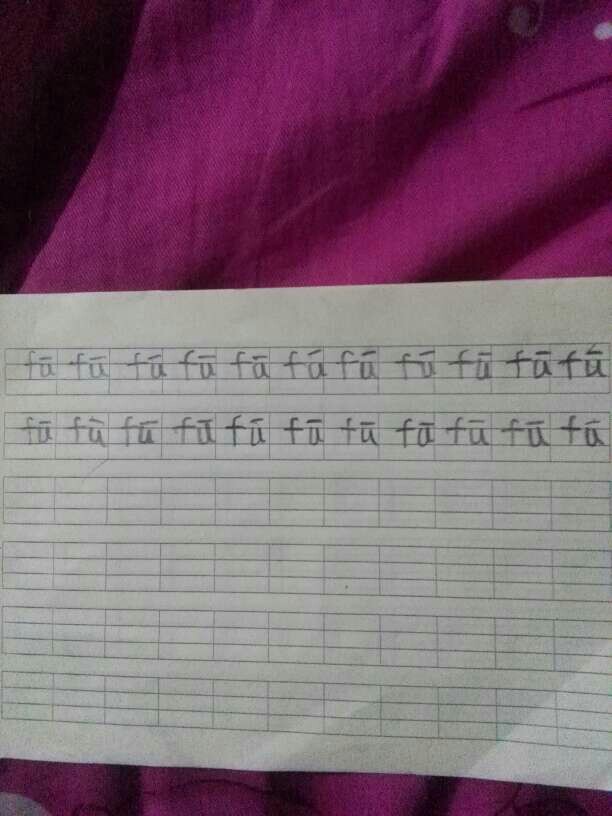 fū fū fū fū fū fū fū fū fū fū fū
fū fū fū fū fū fū fū fū fū fū fū